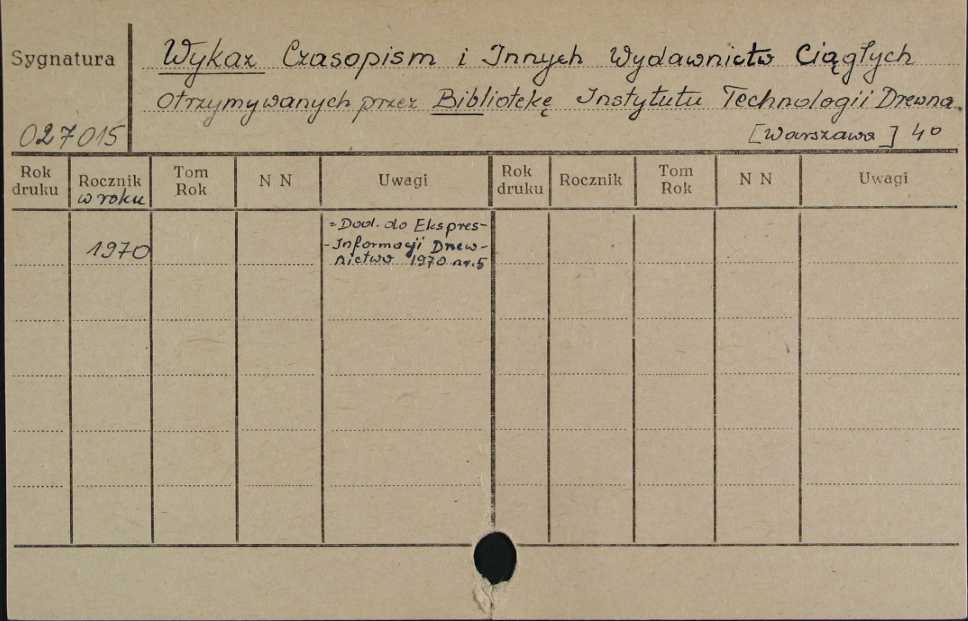 Sygnatura
Wykaz Czasopism i Innych Wydawnictw Ciągłych
otrzymywanych przez Bibliotekę Instytutu Technologii Drewna.
027015
[Warszawa] 4°
Rok druku
Rocznik w roku
Tom Rok
N N
Uwagi
Rok druku
Rocznik
Tom Rok
N N
Uwagi
1970
= Dod. do Ekspres-
-Informacji Drzew-
nictwo 1970 nr. 5